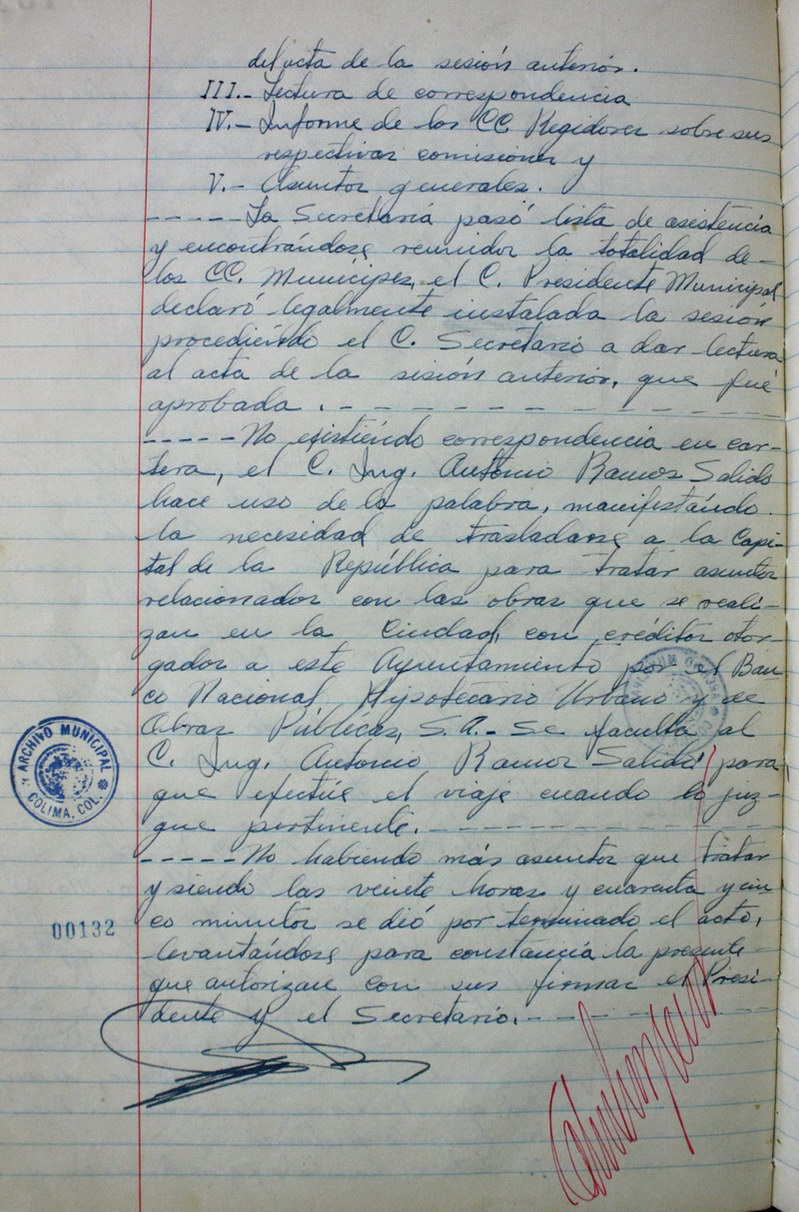 del acta de la sesión anterior.
III.- Lectura de correspondencia
IV.- Informe de los CC. Regidores sobre sus
respectivas comisiones y
V.- Asuntos generales.
-----La Secretaría pasó lista de asistencia
y encontrándose reunidos la totalidad de-
los CC. Munícipes, el C. Presidente Municipal
declaró legalmente instalada la sesión
procediendo el C. Secretario a dar lectura
al acta de la sesión anterior, que fué
aprobada.- - - - - - - - - -
-----No existiendo correspondencia en car-
tera, el C. Ing. Antonio Ramos Salido
hace uso de la palabra, manifestando
la necesidad de trasladarse a la Capi-
tal de la República para tratar asuntos
relacionados con las obras que se reali-
zan en la Ciudad, con créditos otor-
gados a este Ayuntamiento por el Ban
co Nacional Hipotecario Urbano y de
Obras Públicas, S.A.- Se faculta al
C. Ing. Antonio Ramos Salido para
que efectúe el viaje cuando lo juz-
gue pertinente.- - - - - - - - - -
-----No habiendo más asuntos que tratar
y siendo las veinte horas y cuarenta y cin
co minutos se dió por terminado el acto,
levantándose para constancia la presente
que autorizan con sus firmas el Presi-
dente y el Secretario.- - - - - - -
ARCHIVO MUNICIPAL
COLIMA, COL.
00132